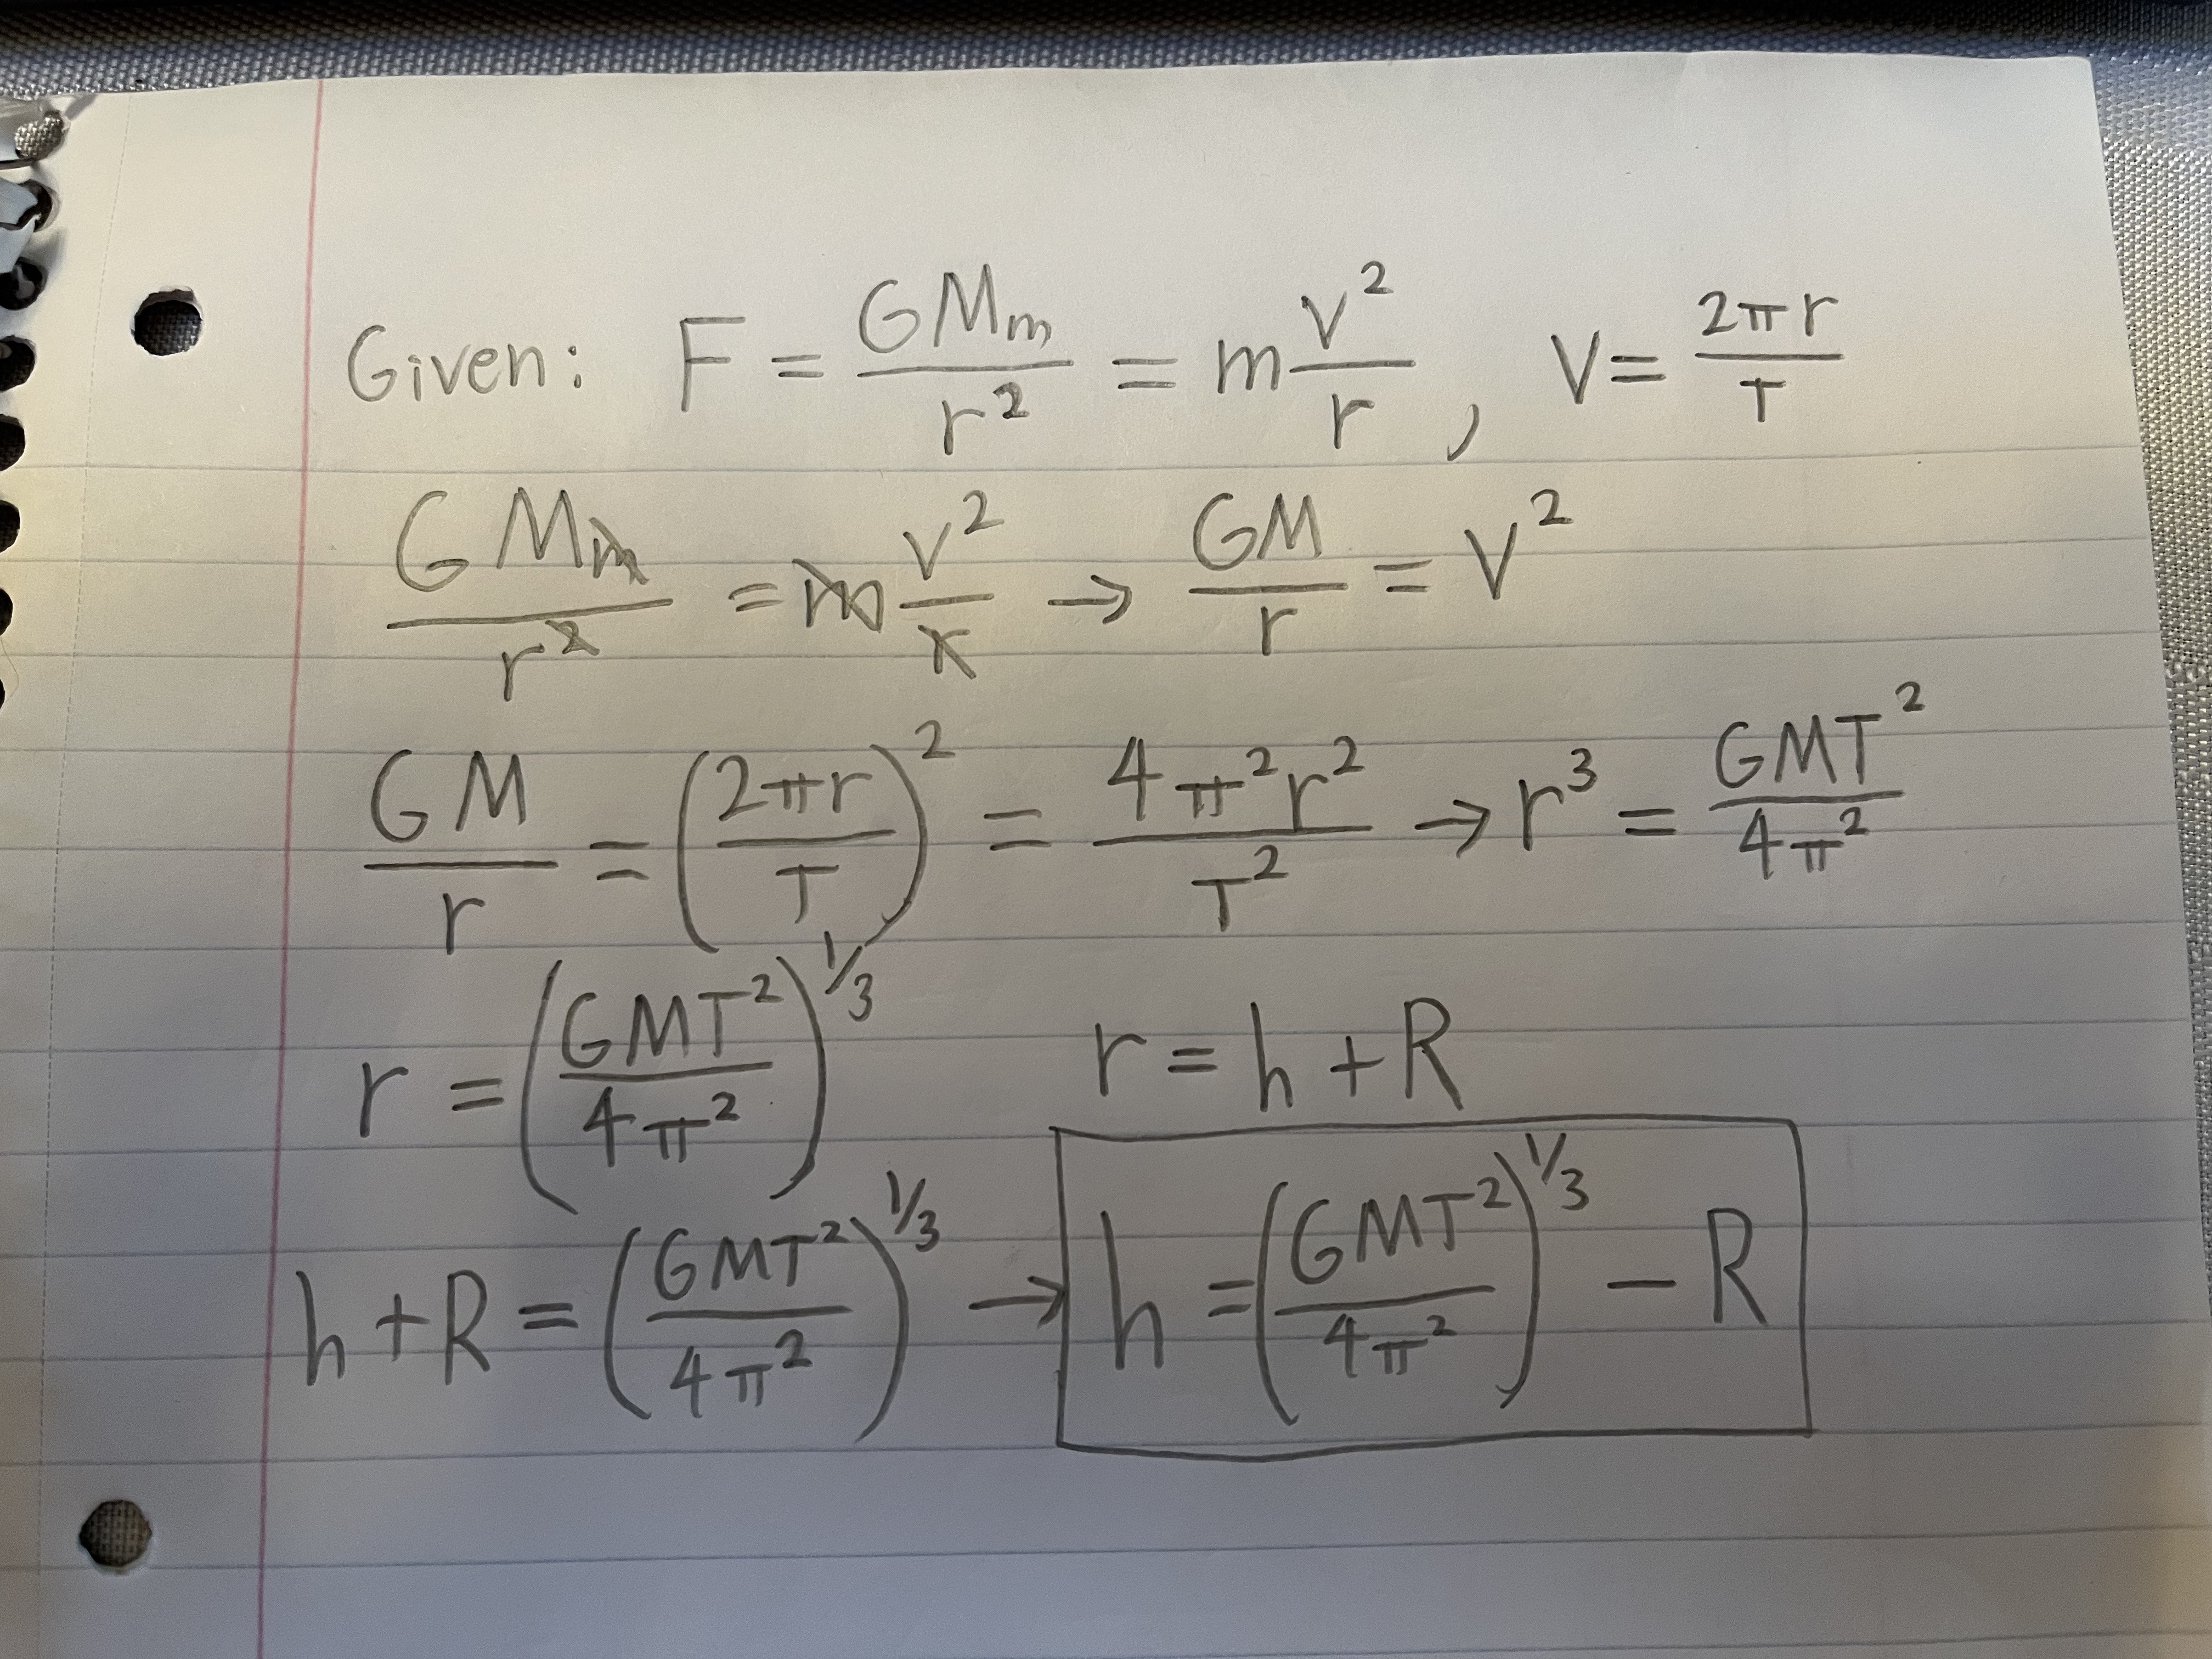 Given: F = GMm/r² = m v²/r , V = 2πr/T
GMm/r² = m v²/r → GM/r = V²
GM/r = (2πr/T)² = 4π²r²/T² → r³ = GMT²/4π²
r = (GMT²/4π²)^1/3 r = h + R
h + R = (GMT²/4π²)^1/3 → h = (GMT²/4π²)^1/3 − R